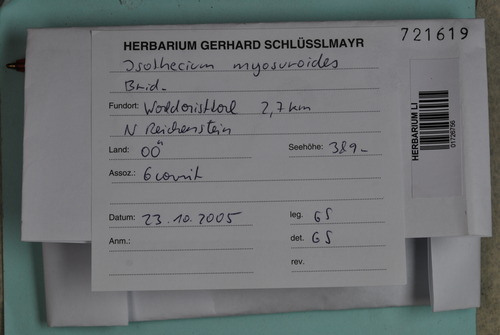 HERBARIUM GERHARD SCHLÜSSLMAYR
721619
Isothecium myosuroides
Brid.
Fundort: Waldaisttal 2,7 km
N Reichenstein
Land: OÖ
Seehöhe: 389
Assoz.: Granit
Datum: 23.10.2005
leg. GS
Anm.:
det. GS
rev.
HERBARIUM LI
01726756